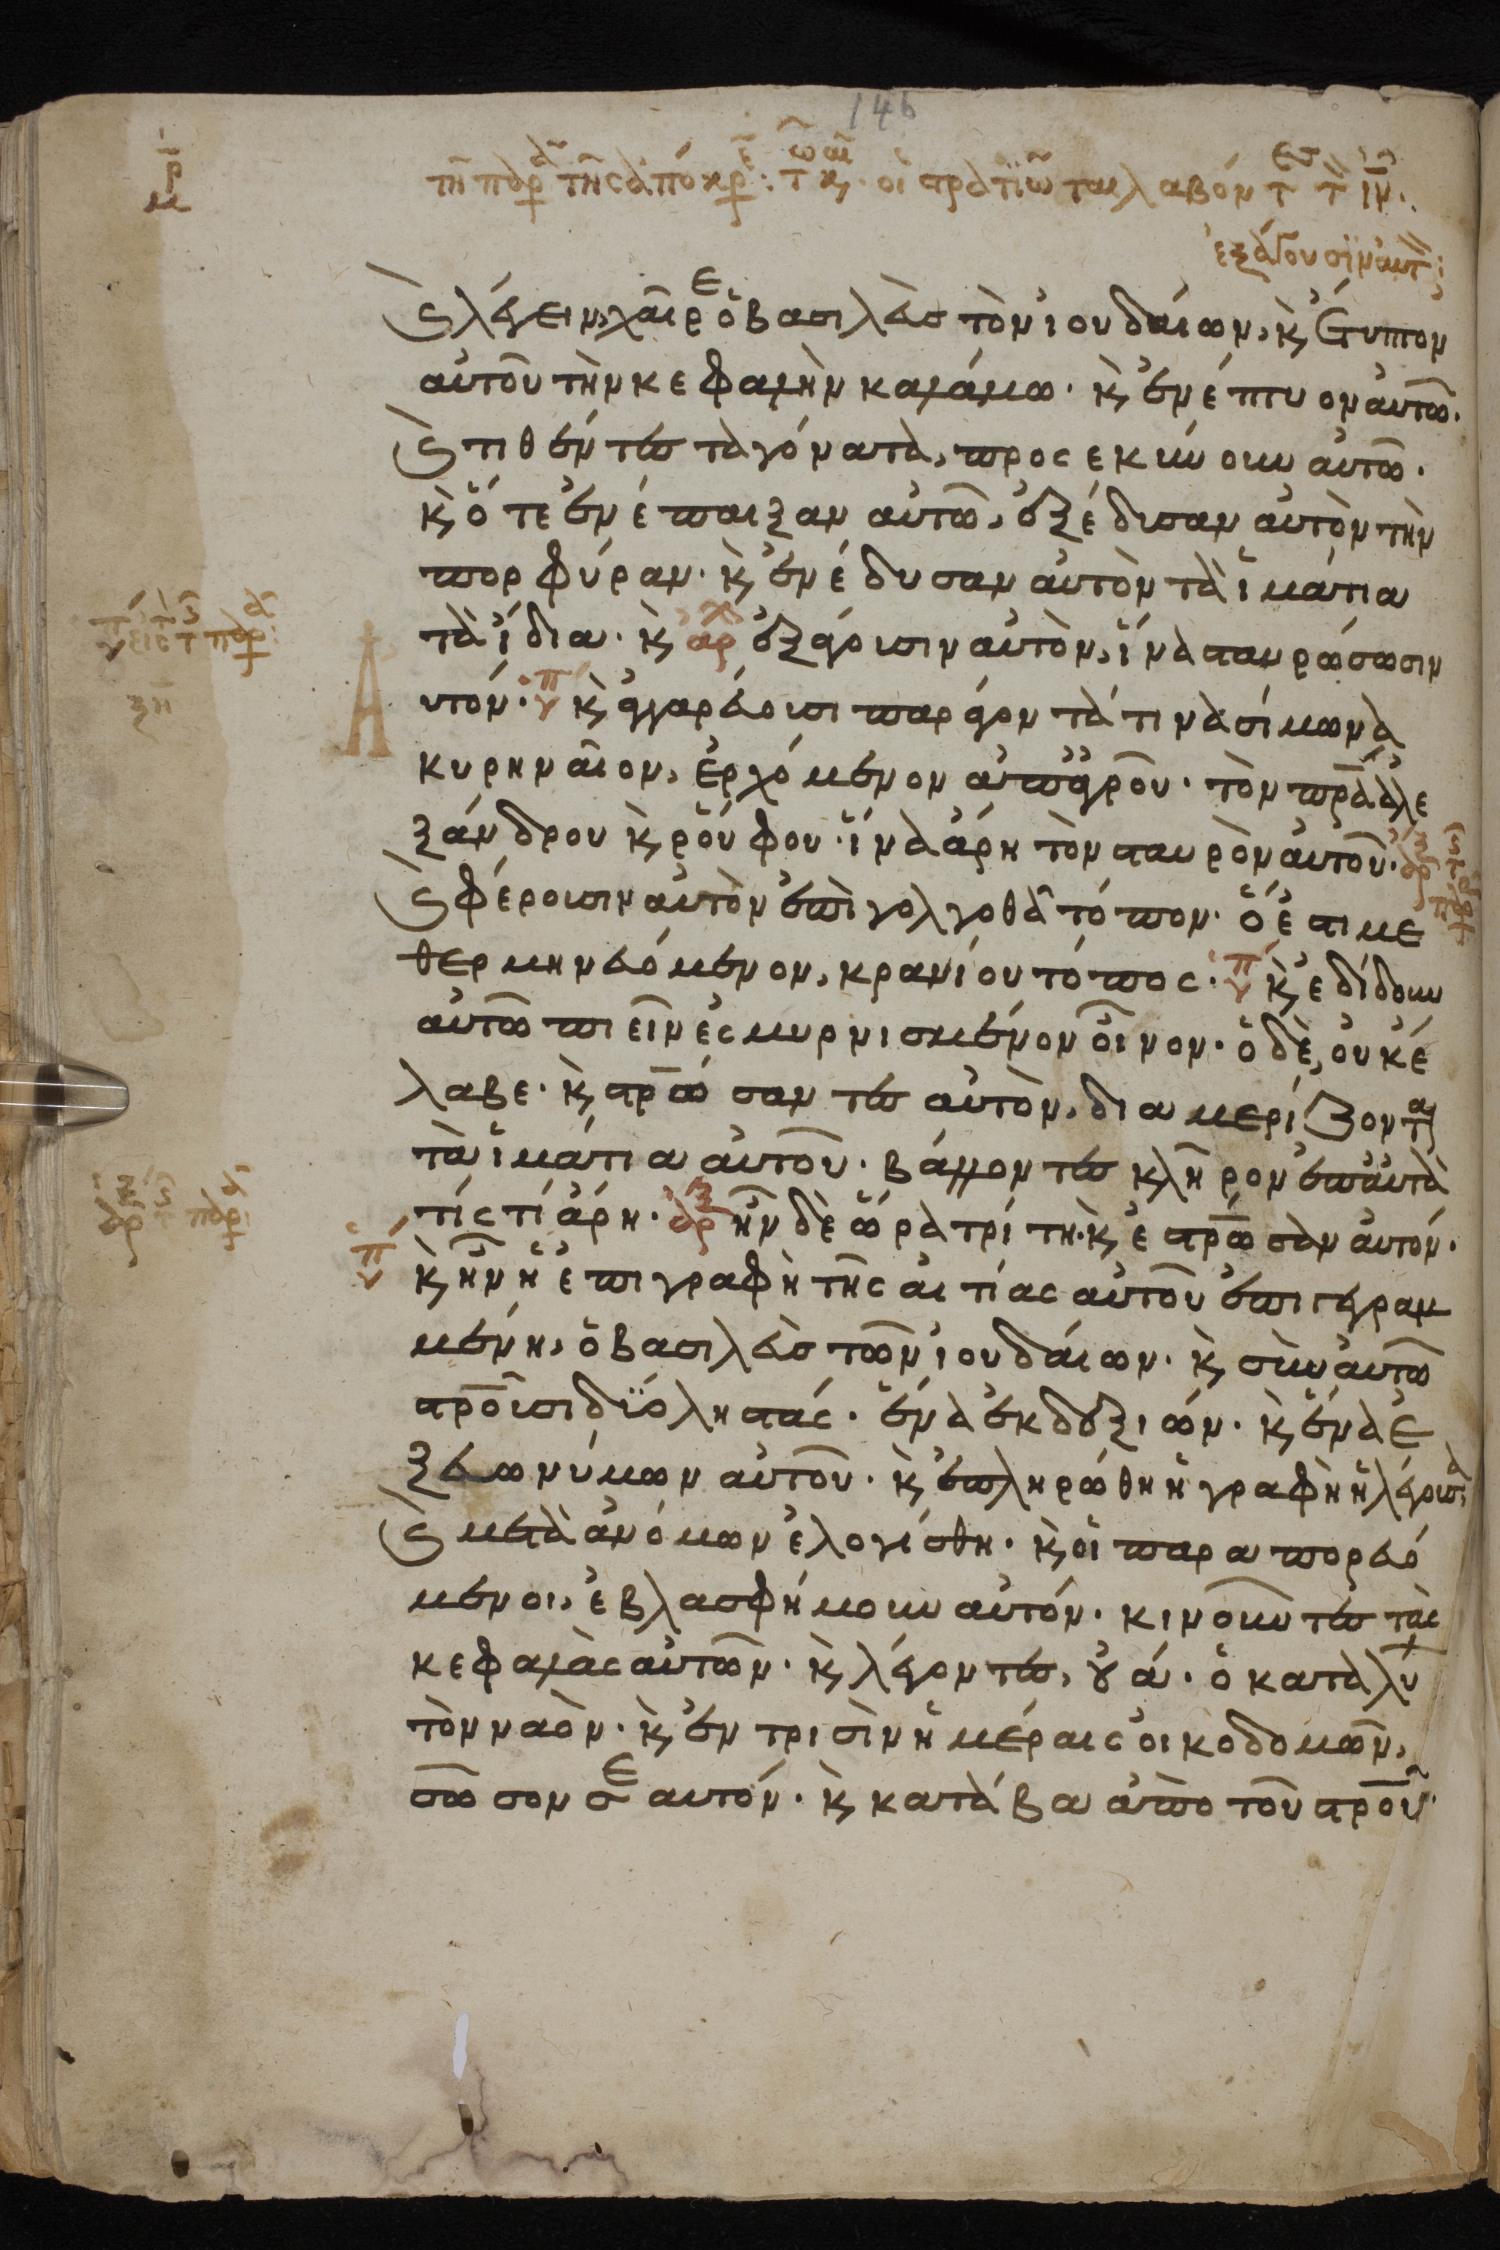 146
οἱ στρατιῶται λαβόντ τ ἰν.
ἐξάγουσιν αυτ:
ϗ λέγειν, χαῖρε ὁ βασιλεὺς τῶν ἰουδαίων, ϗ ἔτυπτον
αὐτοῦ τὴν κεφαλὴν καλάμω· ϗ ἐνέπτυον αὐτῶ·
ϗ τιθέντες τὰ γόνατα, προσεκύνουν αὐτῶ·
ϗ ὅτε ἐνέπαιξαν αὐτῶ, ἐξέδυσαν αὐτὸν τὴν
πορφύραν· ϗ ἐνέδυσαν αὐτὸν τὰ ἱμάτια
τὰ ἴδια· ϗ ἀρχ ἐξάγουσιν αὐτὸν, ἵνα σταυρώσωσιν
υτόν· ϗ ἀγγαρεύουσι παράγοντά τινα σίμωνα
κυρηναῖον, ἐρχόμενον ἀπ' ἀγροῦ· τὸν πρα ἀλε
ξάνδρου ϗ ῥούφου· ἵνα ἄρη τὸν σταυρὸν αὐτοῦ·
ϗ φέρουσιν αὐτὸν ἐπὶ γολγοθᾶ τόπον· ὅ ἐστι με
θερμηνευόμενον, κρανίου τόπος· ϗ ἐδίδουν
αὐτῶ πιεῖν ἐσμυρνισμένον οἶνον· ὁ δὲ, οὐκ ἔ
λαβε· ϗ στρώσαντες αὐτὸν, διαμερίζονται
τὰ ἱμάτια αὐτοῦ· βάλλοντες κλῆρον ἐπ' αὐτὰ
τίς τί ἄρη· ἦν δὲ ὥρα τρίτη· ϗ ἐστρωσαν αὐτόν·
ϗ ἦν ἡ ἐπιγραφὴ τῆς αἰτίας αὐτοῦ ἐπιγεγραμ
μένη, ὁ βασιλεὺς τῶν ἰουδαίων· ϗ σὺν αὐτῶ
στροῦσι δύο ληστάς· ἕνα ἐκ δεξιῶν· ϗ ἕνα ἐ
ξ εὐωνύμων αὐτοῦ· ϗ ἐπληρώθη ἡ γραφὴ ἡ λέγουσα
ϗ μετὰ ἀνόμων ἐλογίσθη· ϗ οἱ παραπορευό
μενοι, ἐβλασφήμουν αὐτόν· κινοῦντες τὰς
κεφαλὰς αὐτῶν· ϗ λέγοντες, οὐά· ὁ καταλύ
τὸν ναὸν· ϗ ἐν τρισὶν ἡμέραις οἰκοδομῶν,
σῶσον σεαυτόν· ϗ κατάβα ἀπὸ τοῦ στροῦ·